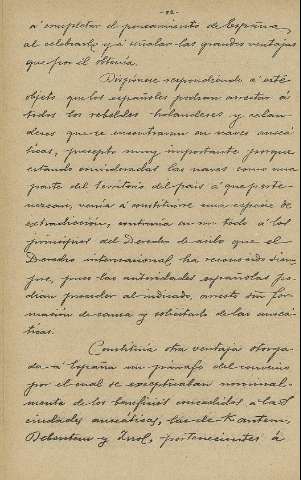 - 12 -
á completar el pensamiento de España,
al celebrarlo y á señalar las grandes ventajas
que por él obtenia.
Dispónese respondiendo á este
objeto que los españoles podran arrestar á
todos los rebeldes holandeses y zelan-
deses que se encontraran en naves anseá-
ticas, precepto muy importante porque
estando consideradas las naves como una
parte del Territorio del pais á que perte-
nezcan, venia á constituirse una especie de
extradicción, contraria en un todo á los
principios del Derecho de asilo que el
Derecho internacional, ha reconocido siem-
pre, pues las autoridades españolas po-
dran proceder al indicado, arresto sin for-
mación de causa y solicitarlo de las anseá-
ticas.
Constituia otra ventaja otorga-
da á España un párrafo del convenio
por el cual se exceptuaban nominal-
mente de los beneficios concedidos á las
ciudades anseáticas, las de
Debenten y pertenecientes á